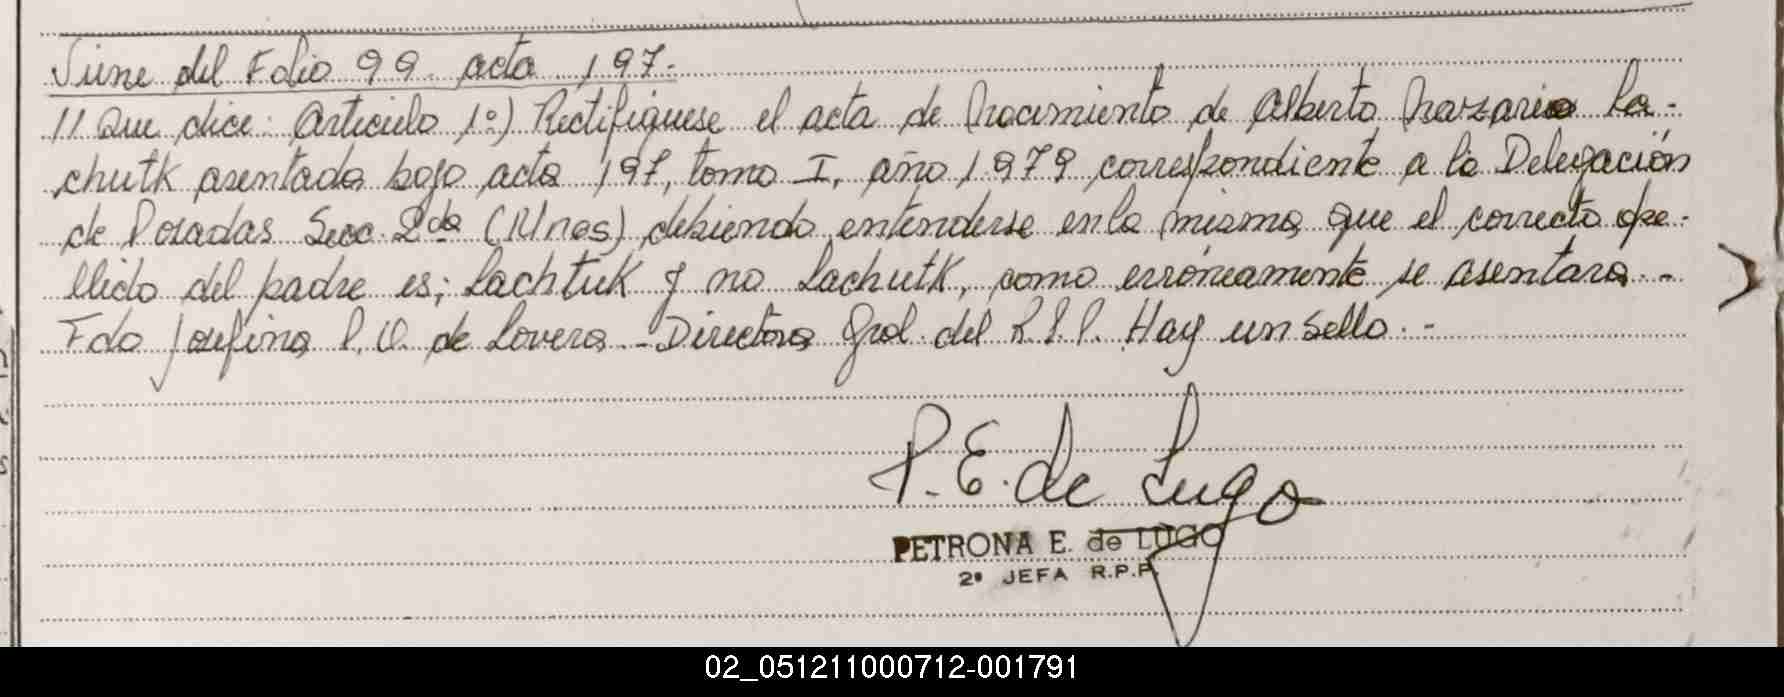 Viene del Folio 99 acta 197.-
// Que dice: Articulo 1º) Rectifiquese el acta de Nacimiento de Alberto Nazario La-
chutk asentada bajo acta 197, tomo I, año 1979 correspondiente a la Delegación
de Posadas Secc. 2da (Mnes) debiendo entenderse en la misma que el correcto ape-
llido del padre es; Lachtuk y no Lachutk, como erróneamente se asentara.-
Fdo Josefina P. O. de Lovera - Directora Gral. del R.P.P. Hay un Sello.-
P. E. de Lugo
PETRONA E. de LUGO
2º JEFA R.P.P.
02_051211000712-001791